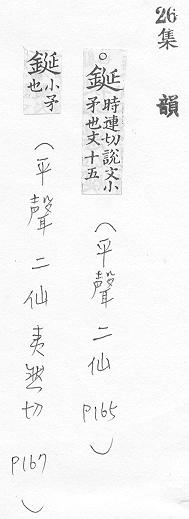 26集 韻
○鋋時連切說文小矛也文十五
(平聲二仙 P165)
鋋小矛也
(平聲二仙夷然切 P167)